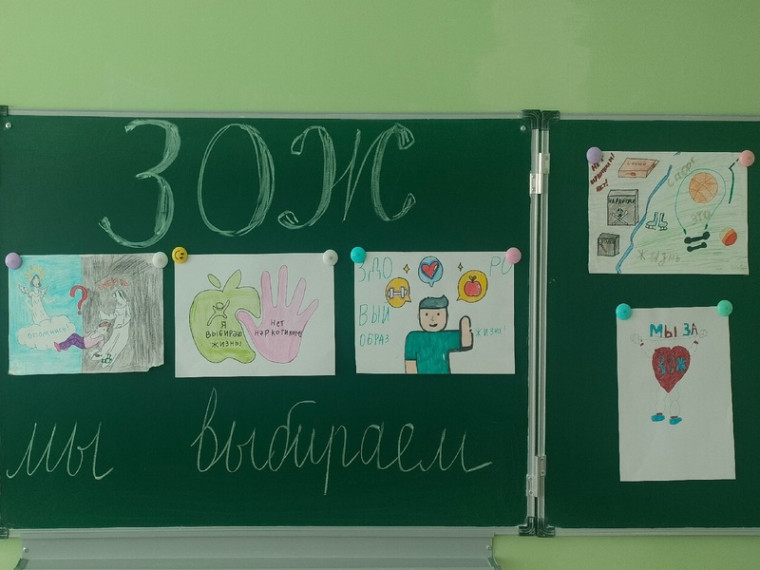 ЗОЖ
?
Я
ВЫБИРАЮ
ЖИЗНЬ!
НЕТ
НАРКОТИКАМ!
ЗДО РО
ВЫЙ
ОБРАЗ ЖИЗНИ!
СПОРТ
ЭТО
ЖИЗНЬ
МЫ ЗА
ЗОЖ
мы выбираем